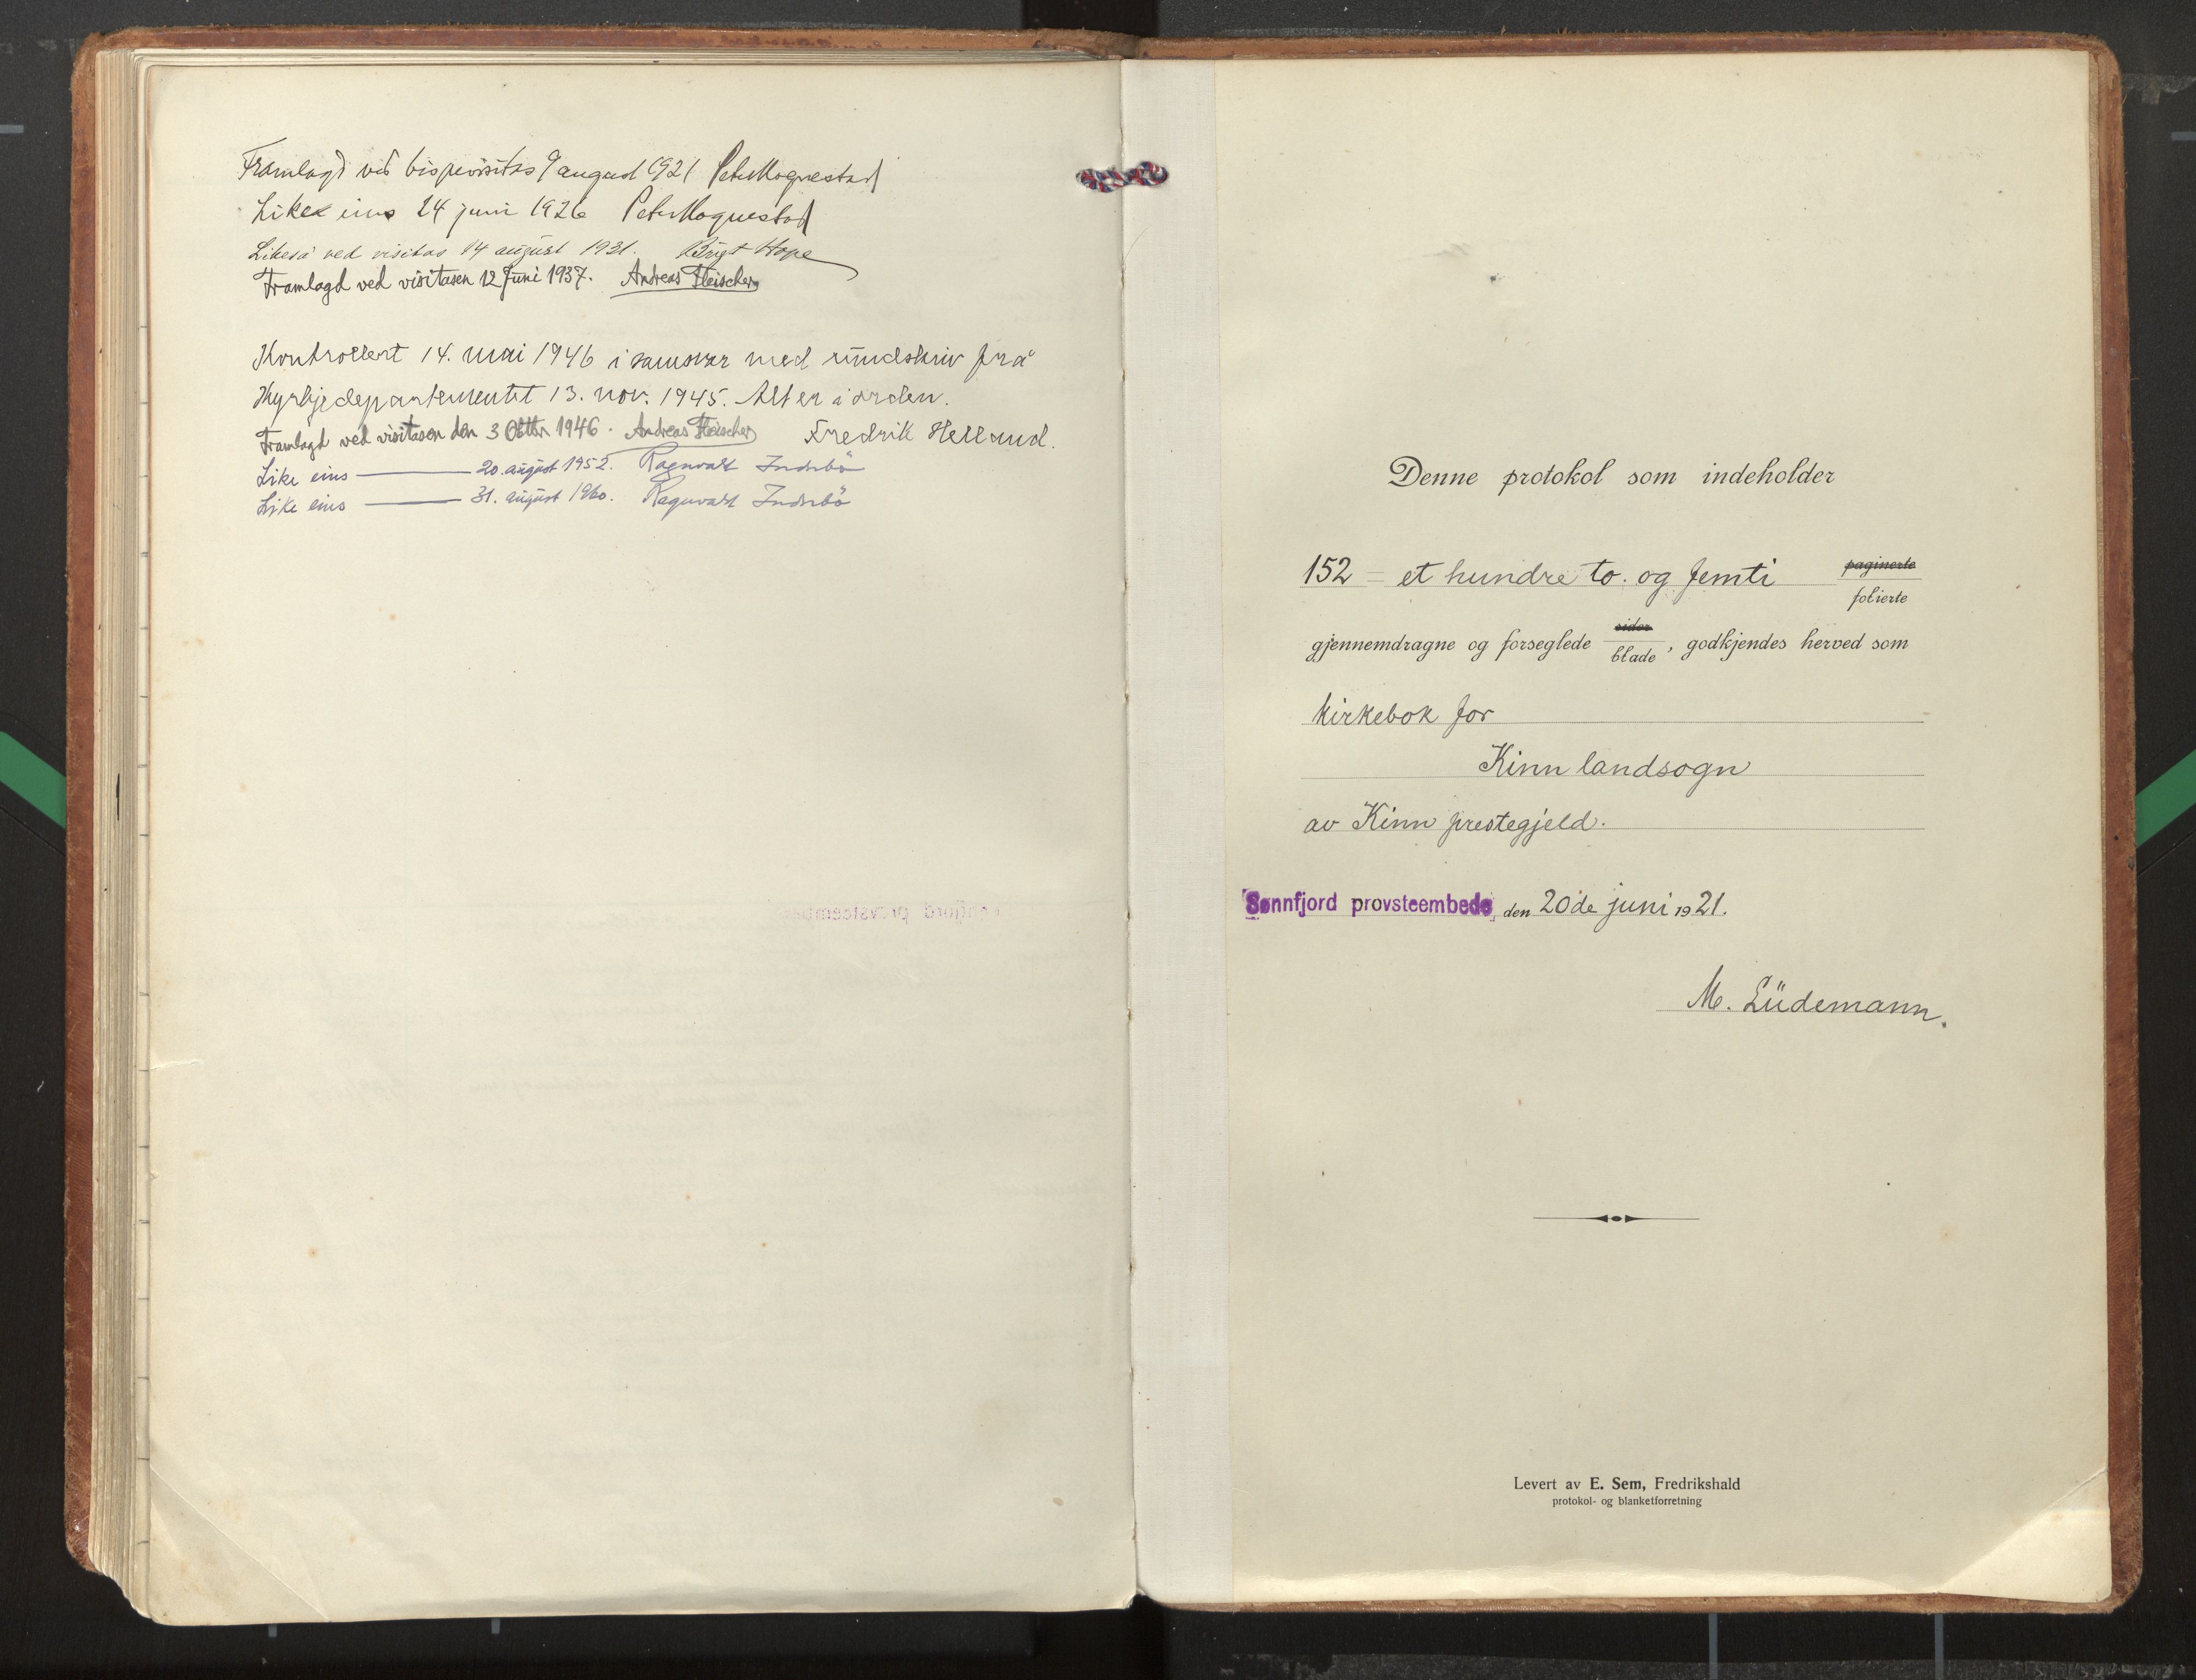 Framlagd ved bispevisitas 9 august 1921 Peter Hognestad
Like eins 24 juni 1926 Peter Hognestad
Likeså ved visitas 14 august 1931. Bryst Hope
Framlagd ved visitasen 12 Juni 1937. Andreas Fleischer
Kontrollert 14. mai 1946 i samsvar med rundskriv frå
Kyrkjedepartementet 13. nov. 1945. Alt er i orden.
Fredrik Helland.
Framlagd ved visitasen den 3 Oktbr 1946. Andreas Fleischer
Like eins — 20. august 1952. Ragnvald Indrebö
Like eins — 31. august 1960. Ragnvald Indrebö
Denne protokol som indeholder
152 = et hundre to og femti paginerte
folierte
gjennemdragne og forseglede sider
blade, godkjendes herved som
kirkebok for
Kinn landsogn
av Kinn prestegjeld.
Sønnfjord provsteembede, den 20de juni 1921.
M. Lüdemann.
Levert av E. Sem, Fredrikshald
protokol- og blanketforretning